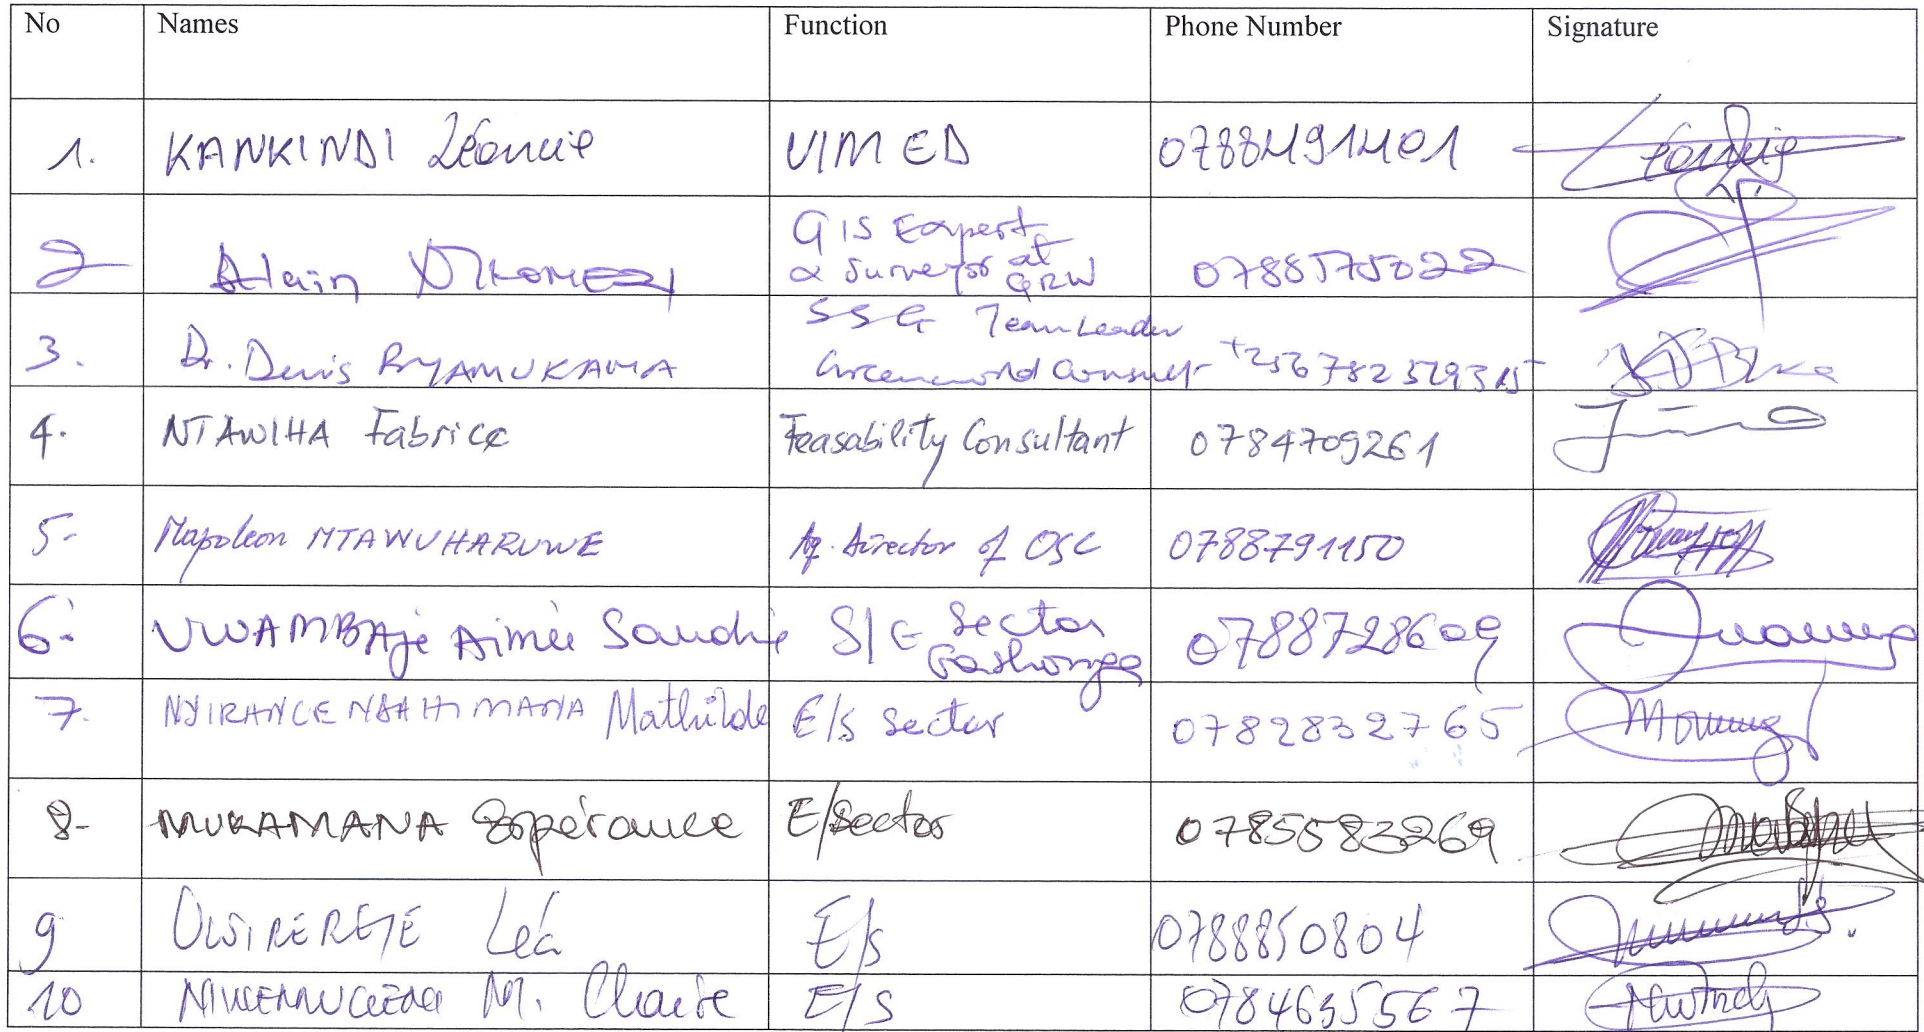 No Names Function Phone Number Signature
1. KANKINDI Léoncie VIMED 0788491401
2 Alain NKOMEZI GIS Expert & Surveyor at GRW 0788575022
3. Dr. Denis BYAMUKAMA SSG Team Leader Greenworld Consult +256782529315
4. NTAWIHA Fabrice Feasability Consultant 0784709261
5- Napoleon NTAWUHARUWE Director of OSC 0788791150
6- UWAMBAJE Aimée Sandrie S/E Sector 0788728609
7. Mathilde E/S Sector 0782832765
8- MUKAMANA Espérance E/Sector 0785583269
9 UWIRERETE Léa E/S 0788850804
10 M. Claire E/S 0784635567